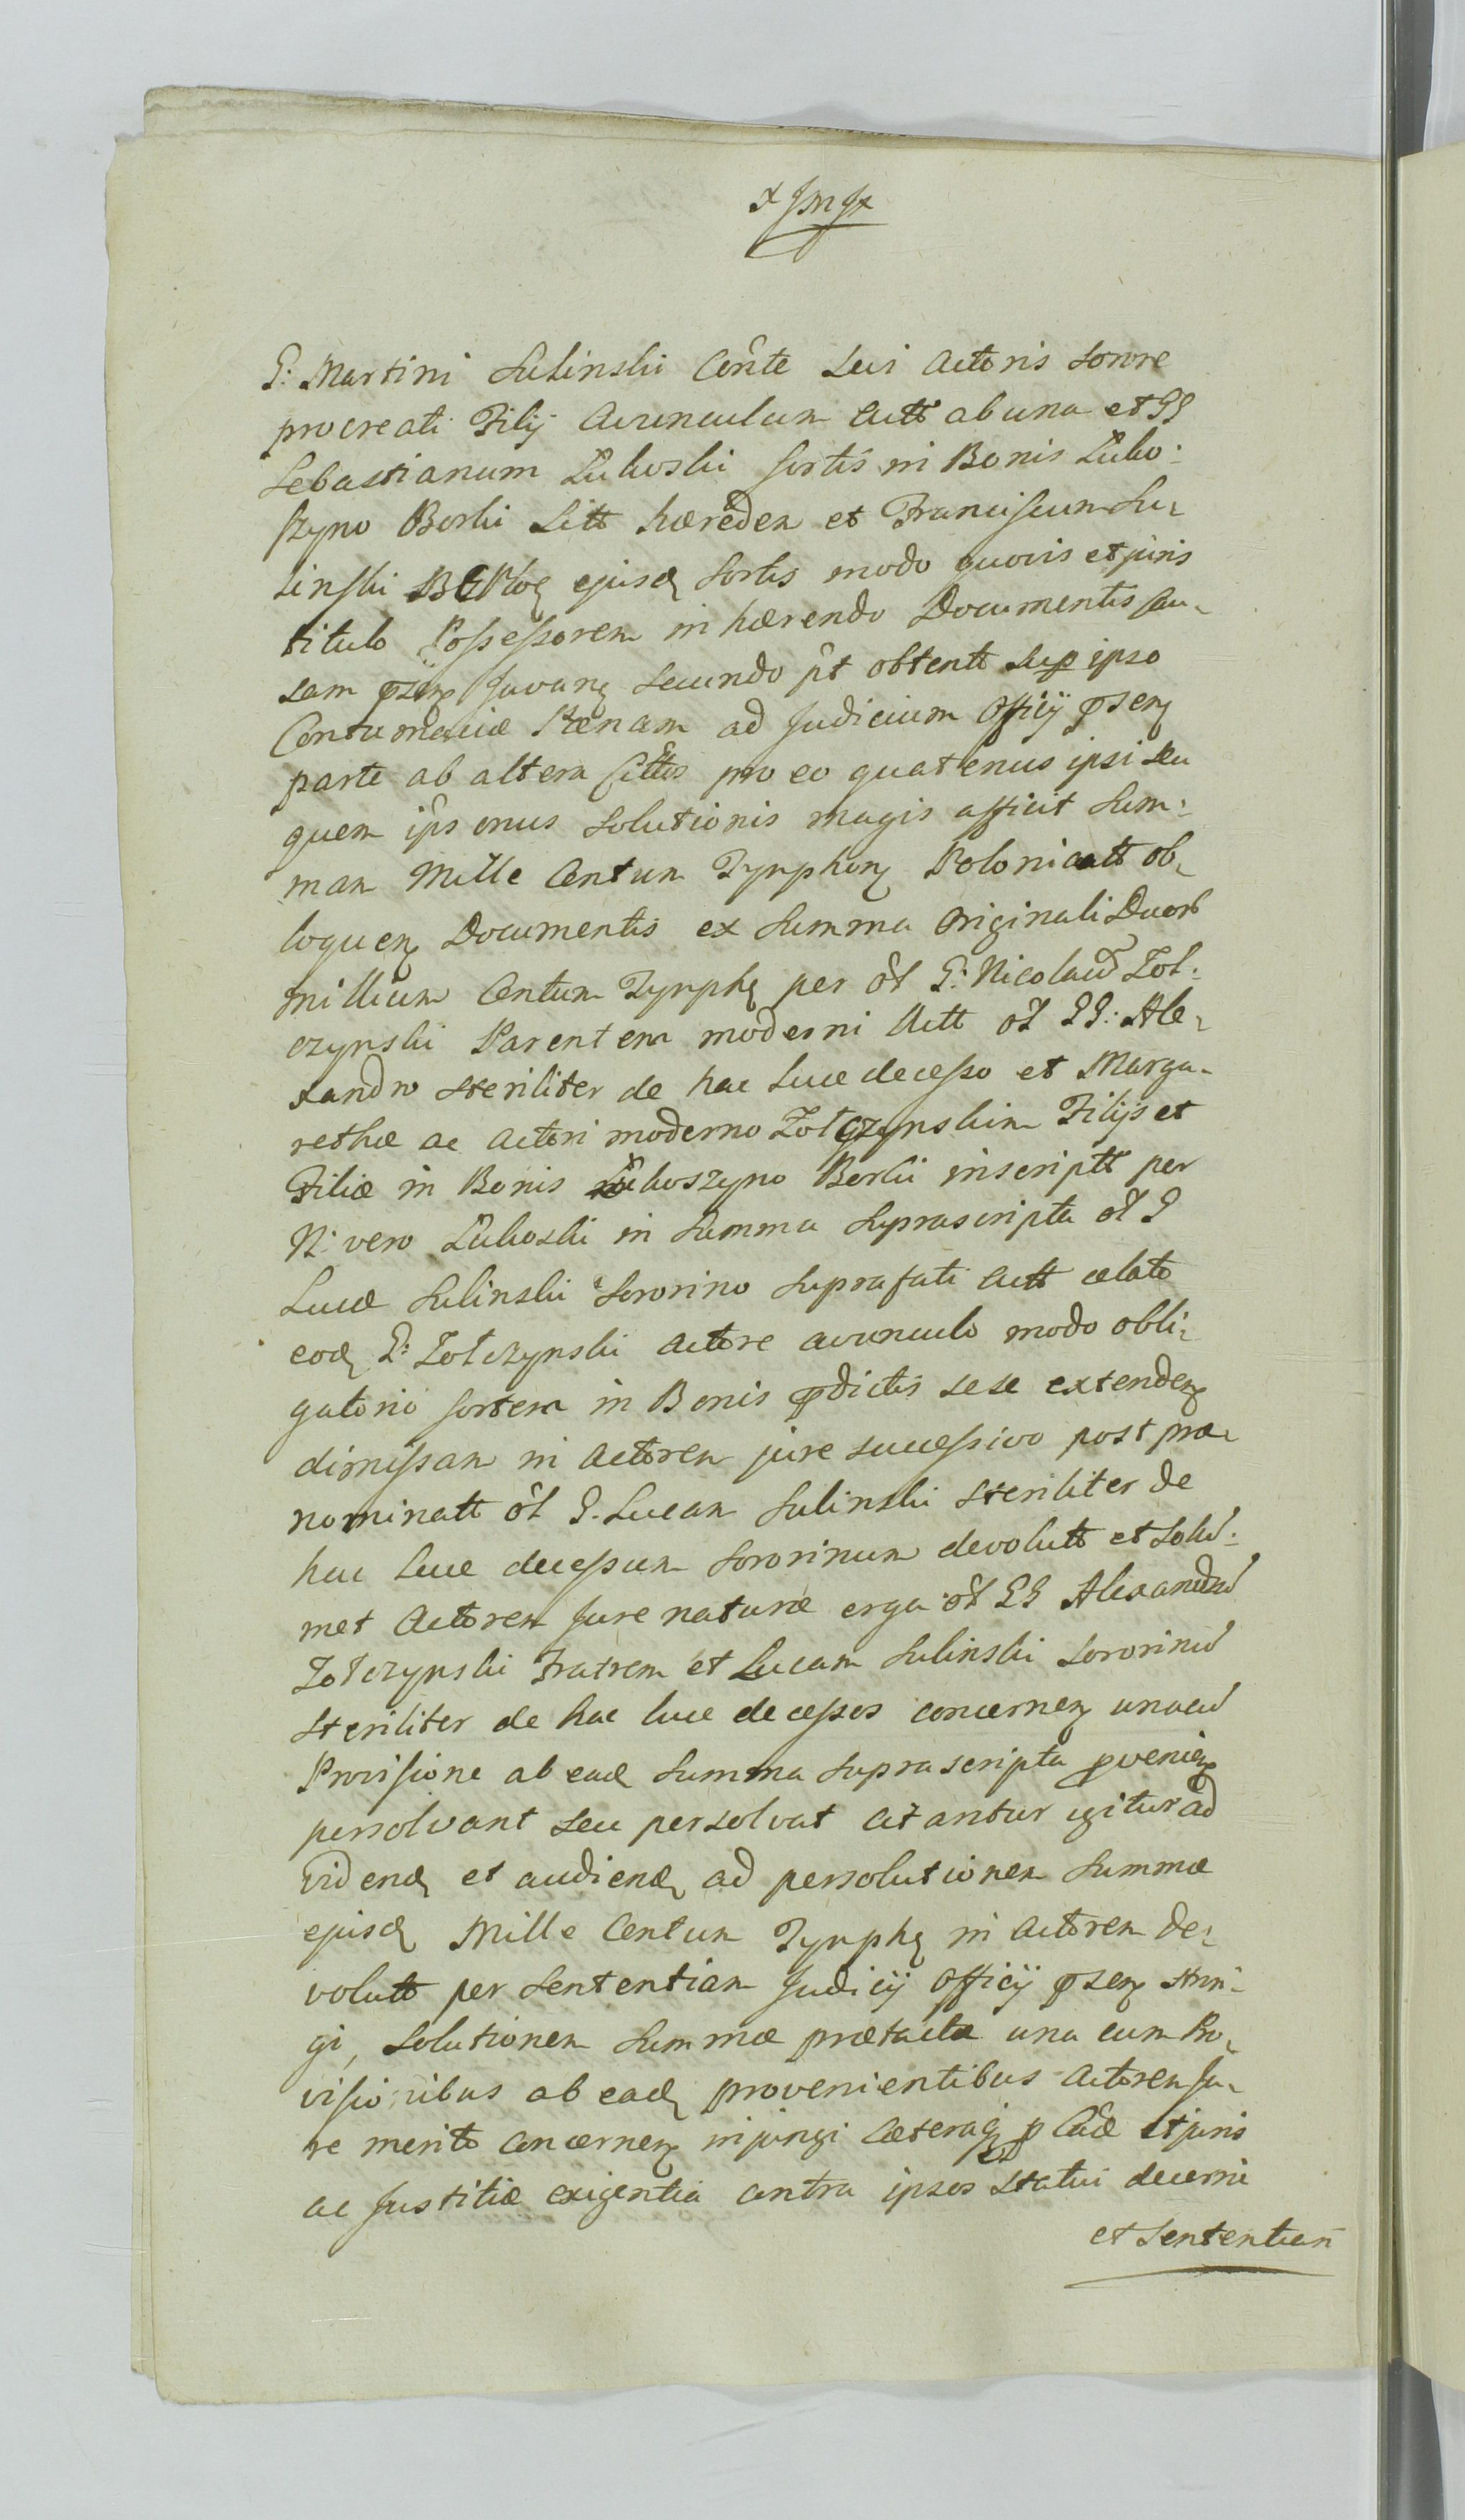 G: Martini Sulinski Cen̂te Sui Actoris Sorore
procreati Filij Avunculum Actt ab una et GG
Sebastianum Łukoski sortis in Bonis Łuko:
szyno Borki Sitt hæredem et Franciscum Su-
linski ejusd sortis modo quovis et juris
titulo Possessorem in hærendo Documentis Cau-
sam psen Juvan secundo p̂t obtentt Sup ipso
Contumaciæ Pænam ad Judicium Officij psen
parte ab altera Citttos pro eo quatenus ipsi seu
quem ip̂s onus Solutionis magis afficit Sum:
mam Mille Centum Tynphon Polonicatt ob-
loquen Documentis ex Summa Originali Duor
millium Centum Tynph per ôl G: Nicolaū Żoł:
czynski Parentem moderni Actt ôl GG: Ale-
xandro steriliter de hac luce decesso et Marga-
rethæ ac Actori moderno Żołczynskim Filijs et
Filiæ in Bonis Łukoszyno Borki inscriptt per
N: vero Łukoski in Summa Suprascripta ôl G
Lucæ Sulinski Sororino Suprafati Actt ælato
eod G: Żołczynski Actore avunculo modo obli-
gatorio sortem in Bonis pdictis sese extenden
dimissam in Actorem jure successivo post præ-
nominatt ôl G. Lucam Sulinski steriliter de
hac luce decessum Sororinum devolutt et Solū:
met Actorem Jure naturæ erga ôl GG Alexandrū
Żołczynski Fratrem et Lucam Sulinski Sororinū
steriliter de hac luce decessos concernen unacū
Provisione ab ead Summa Suprascripta pvenien
persolvant seu persolvat citantur igitur ad
viden et audien ad persolutionem Summæ
ejusd Mille Centum Tynph in Actorem de-
volutt per Sententiam Judicij Officij psen strin-
gi, Solutionem Summæ prætactæ una cum Pro-
visionibus ab ead provenientibus Actorem Ju-
re merito concernen injungi Cæteraq p Caâ et juris
ac Justitiæ exigentia contra ipsos statui decerni
et Sententiam